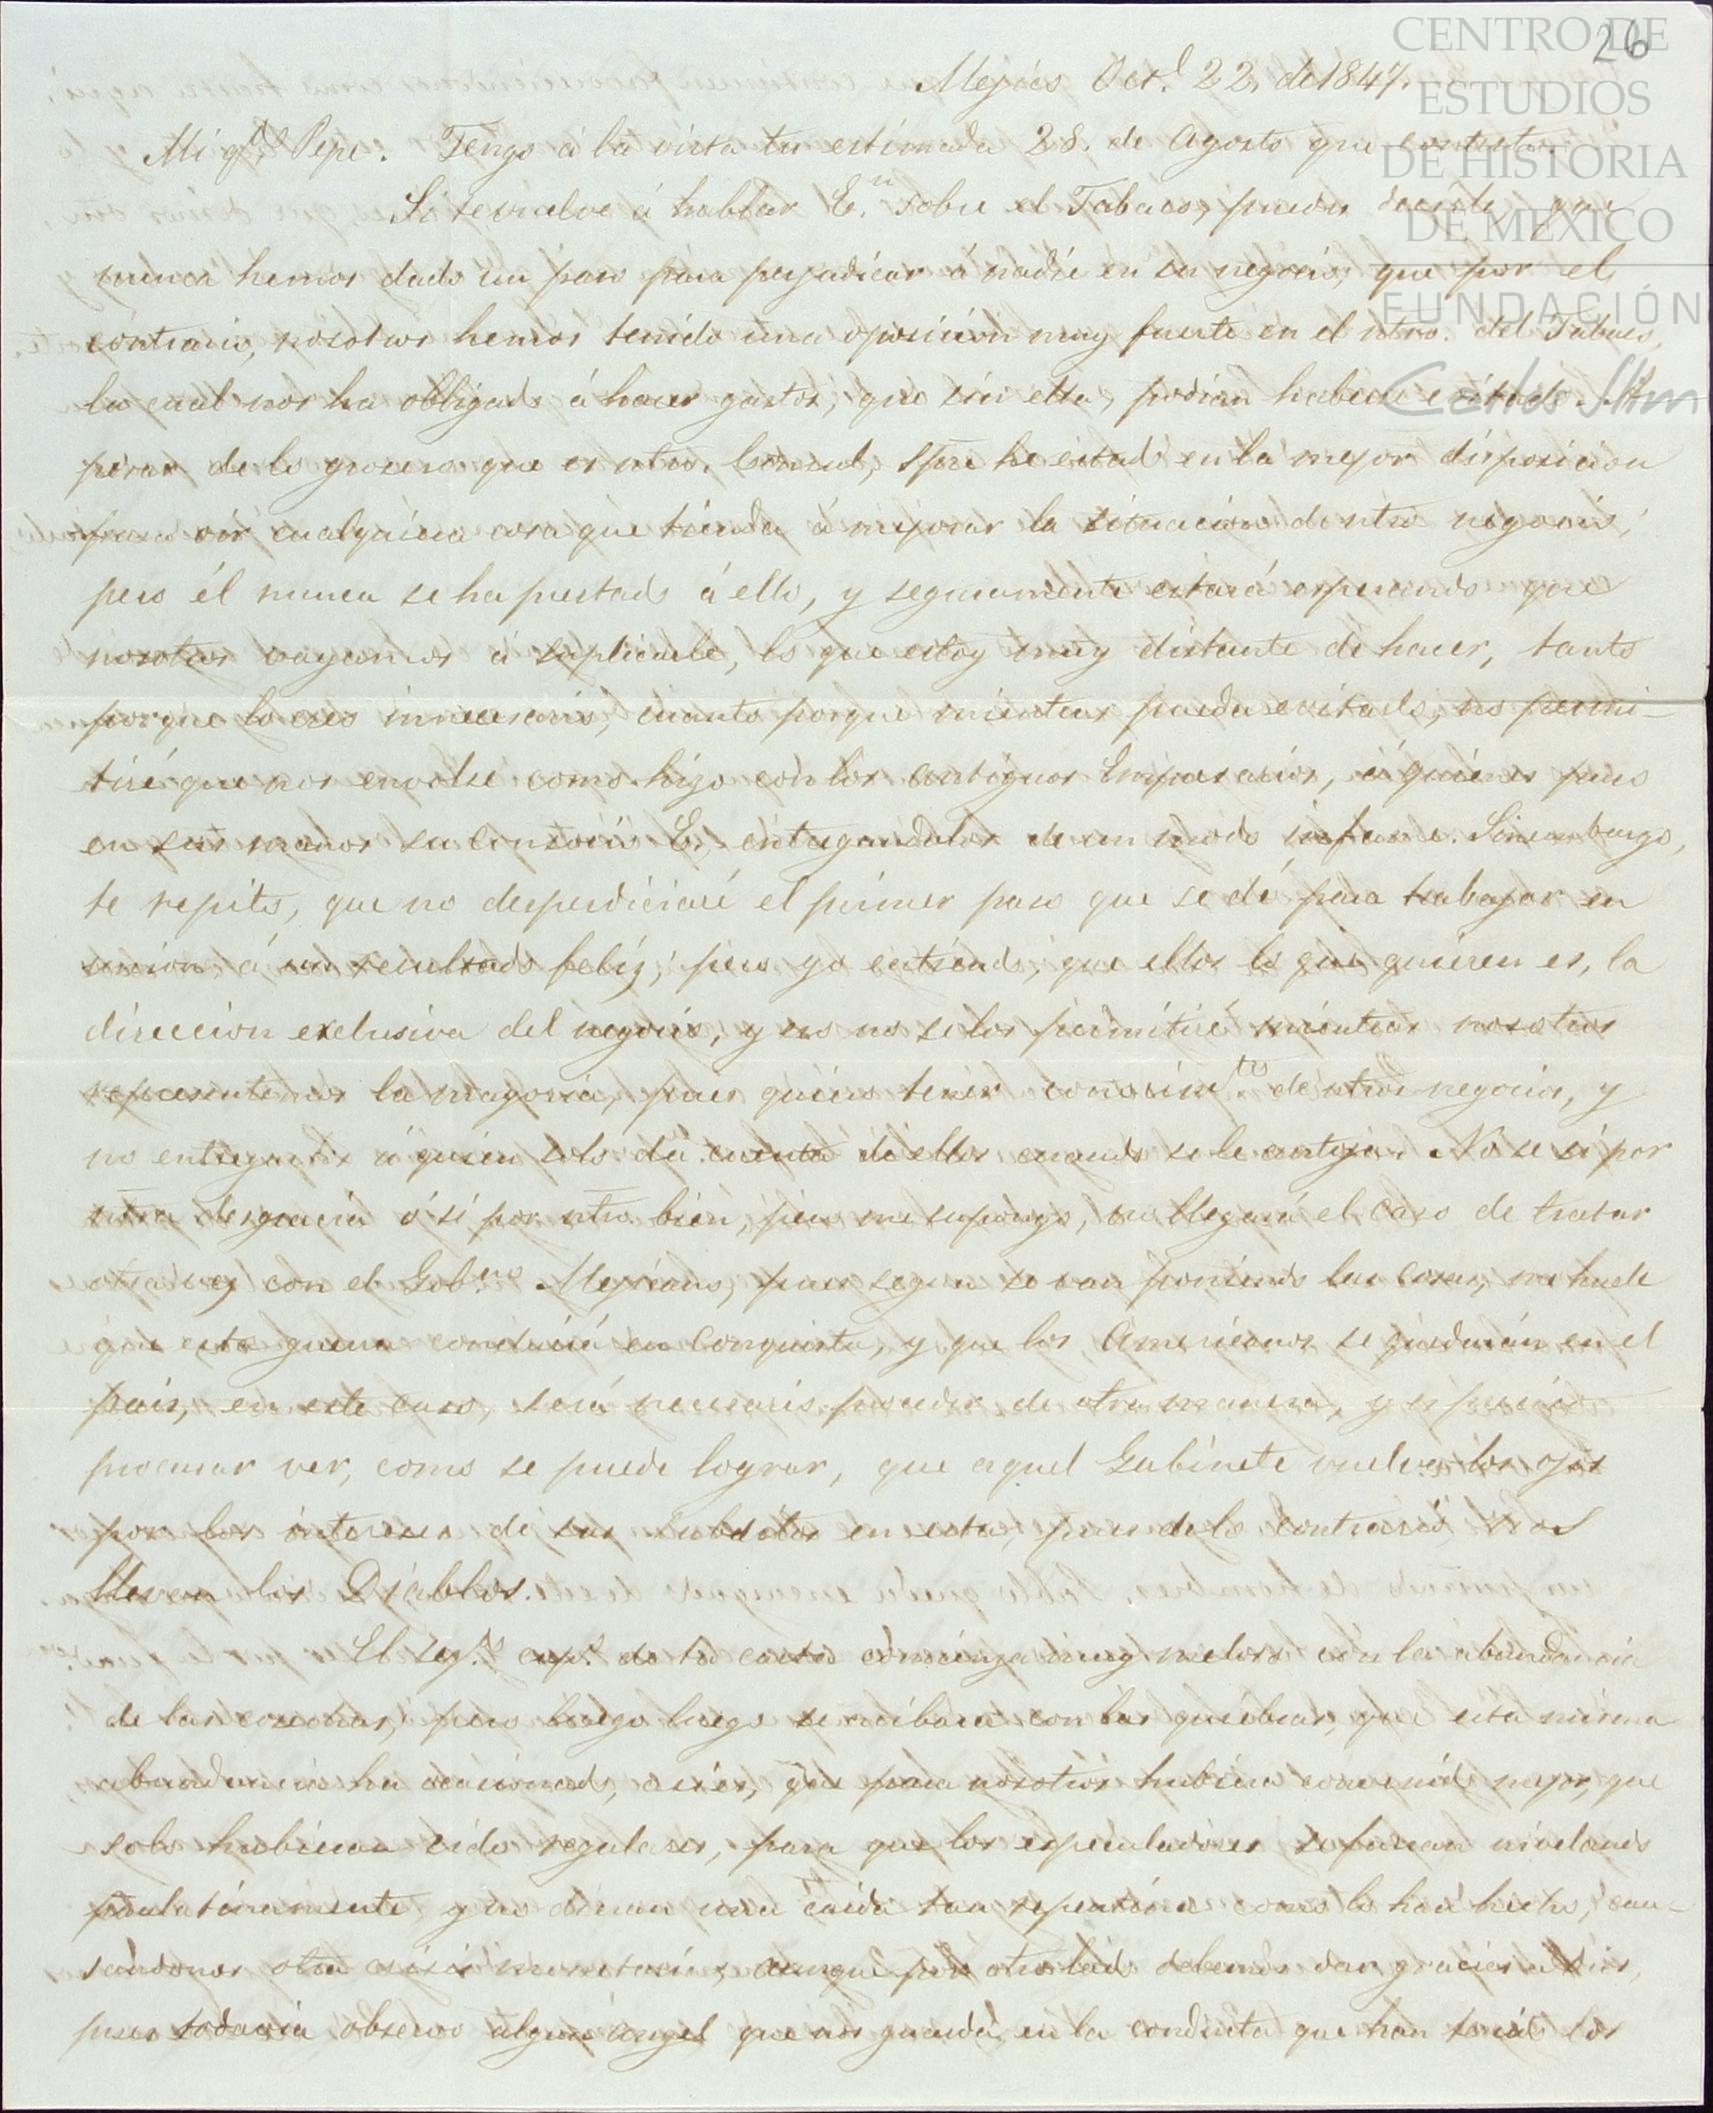 26
CENTRO DE
ESTUDIOS
DE HISTORIA
DE MÉXICO
FUNDACIÓN
Carlos Slim
Mejico Oct.e 22, de 1847.
Mi q.do Pepe. Tengo á la vista tu estimada 28. de Agosto que contesto.
Si te vuelve á hablar E.n sobre el Tabaco, puedes decirle, que
nunca hemos dado un paso para perjudicar á nadie en su negocio; que por el
contrario, nosotros hemos tenido una oposicion muy fuerte en el ntro. del Tabaco,
la cual nos ha obligado á hacer gastos, que sin ella, podian haberse evitado. A
pesar de lo grosero que es ntro. Consul, spre he estado en la mejor disposicion
para oir cualquiera cosa que tienda á mejorar la situacion de ntro negocio;
pero él nunca se ha prestado á ello, y seguramente estará esperando que
nosotros vayamos á suplicarle, lo que estoy muy distante de hacer, tanto
porque lo creo innecesario, cuanto porque mientras pueda evitarlo, no permi-
tiré que nos envolse como hizo con los antiguos Empresarios, á quienes puso
en sus manos su consocio E., entregandolos de un modo infame. Sinembargo,
te repito, que no desperdiciaré el primer paso que se dé para trabajar en
union, á un resultado feliz; pero yo entiendo, que ellos lo que quieren es, la
direccion exclusiva del negocio, y eso no se los permitiré mientras nosotros
representemos la mayoria, pues quiero tener conocim.to de ntros negocios, y
no entregarlos á quien solo dá cuenta de ellos cuando se le antoja. No se si por
ntra desgracia ó si por ntro. bien, pero me supongo, no llegará el caso de tratar
otra vez con el Gob.no Mejicano, pues segun se van poniendo las cosas, me huele
que esta guerra concluirá en Conquista, y que los Americanos se quedarán en el
pais, en este caso, será necesario proceder de otra manera, y es preciso
procurar ver, como se puede lograr, que aquel Gabinete vuelva los ojos
por los intereses de sus subditos en esta, pues de lo contrario, nos
llevan los Diablos.
El seg.do cap.o de tu carta comienza muy meloso con la abundancia
de las cosechas, pero luego luego se acibara con las quiebras, que esta misma
abundancia ha ocasionado, asi es, que para nosotros hubiera convenido mejor, que
solo hubieran sido regulares, para que los especuladores se fueran nivelando
paulatinamente y no dieran una caida tan repentina como lo han hecho, cau-
sandonos otra crisis monetaria, aunque por otro lado debemos dar gracias a Dios,
pues todavia observo algun angel que nos guarda, en la conducta que han tenido los